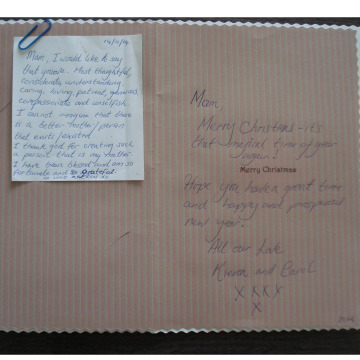 Mam, I would like to say
that you are. Most thoughtful,
considerate, understanding
caring, loving, patient, generous,
compassionate and unselfish
I cannot imagine that there
is a better mother/person
that exists/existed
I thank god for creating such
a person that is my mother
I have been blessed and am so
fortunate and so grateful.
Mam,
Merry Christmas - it's
that special time of year
again!
Merry Christmas
Hope you have a great time
and happy and prosperous
new year.
All our love
Kieran and Carol
X X X X
X